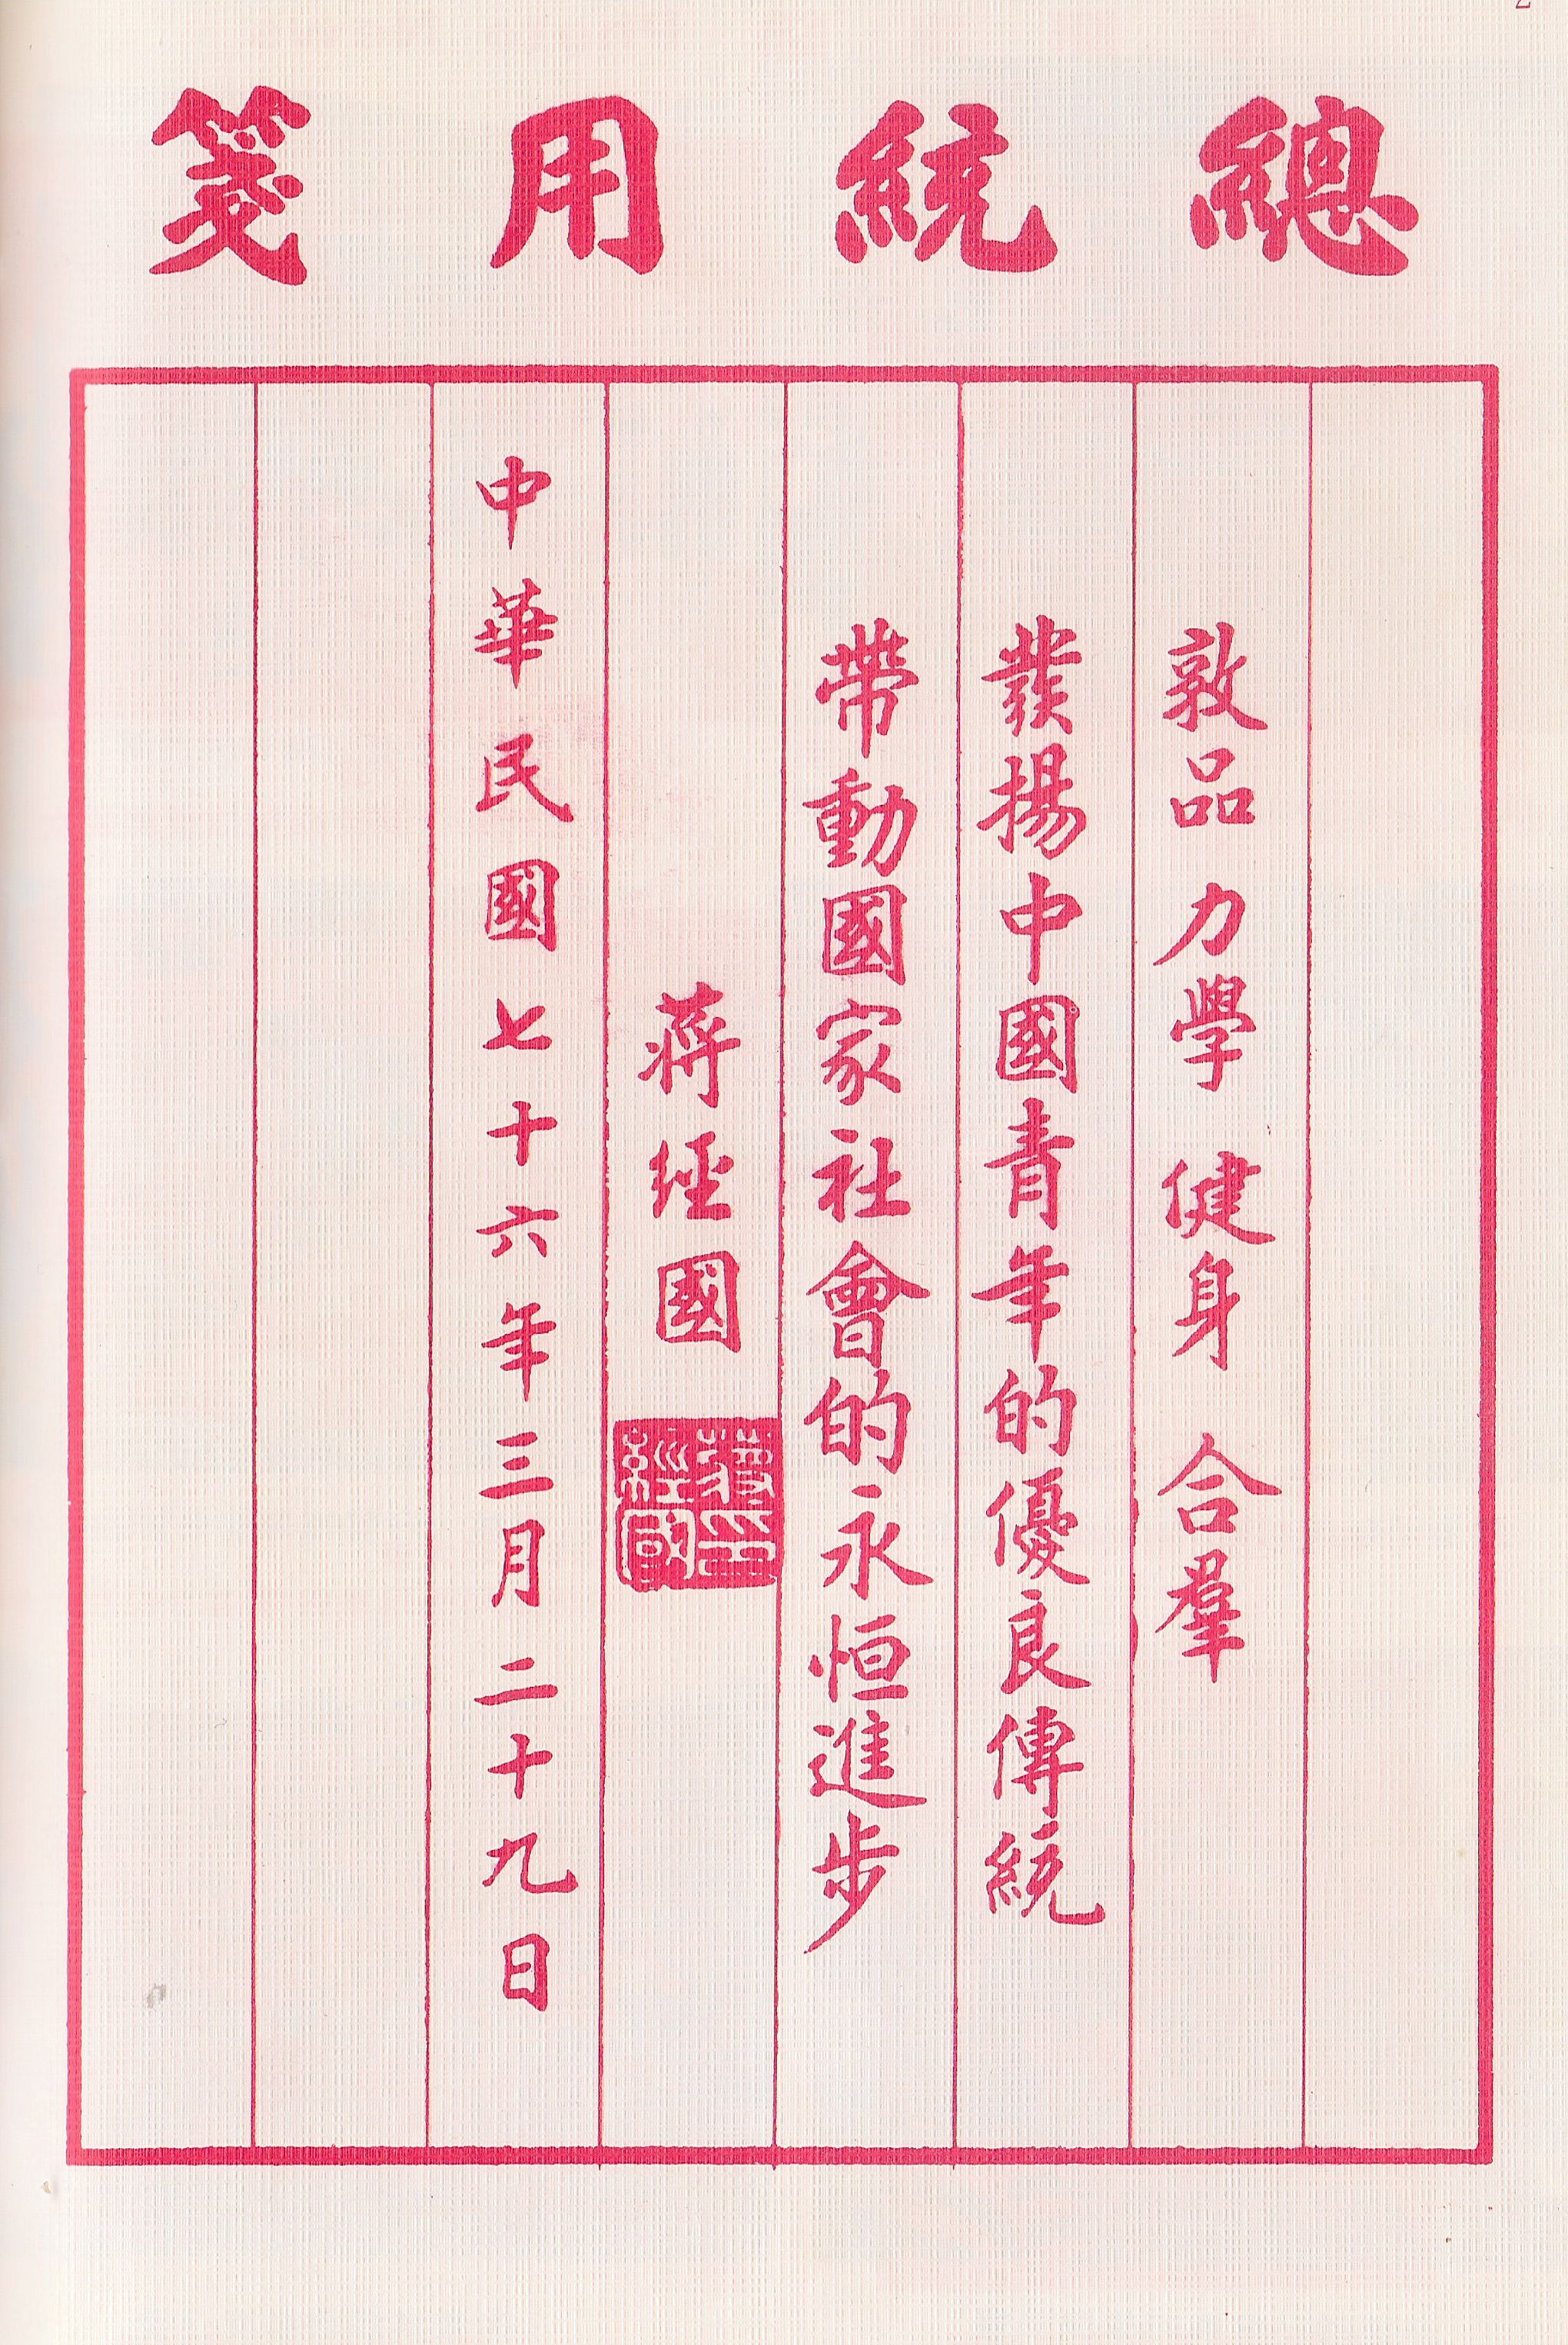 總統用箋
敦品 力學 健身 合羣
發揚中國青年的優良傳統
帶動國家社會的永恒進步
蔣經國
蔣經國印
中華民國七十六年三月二十九日